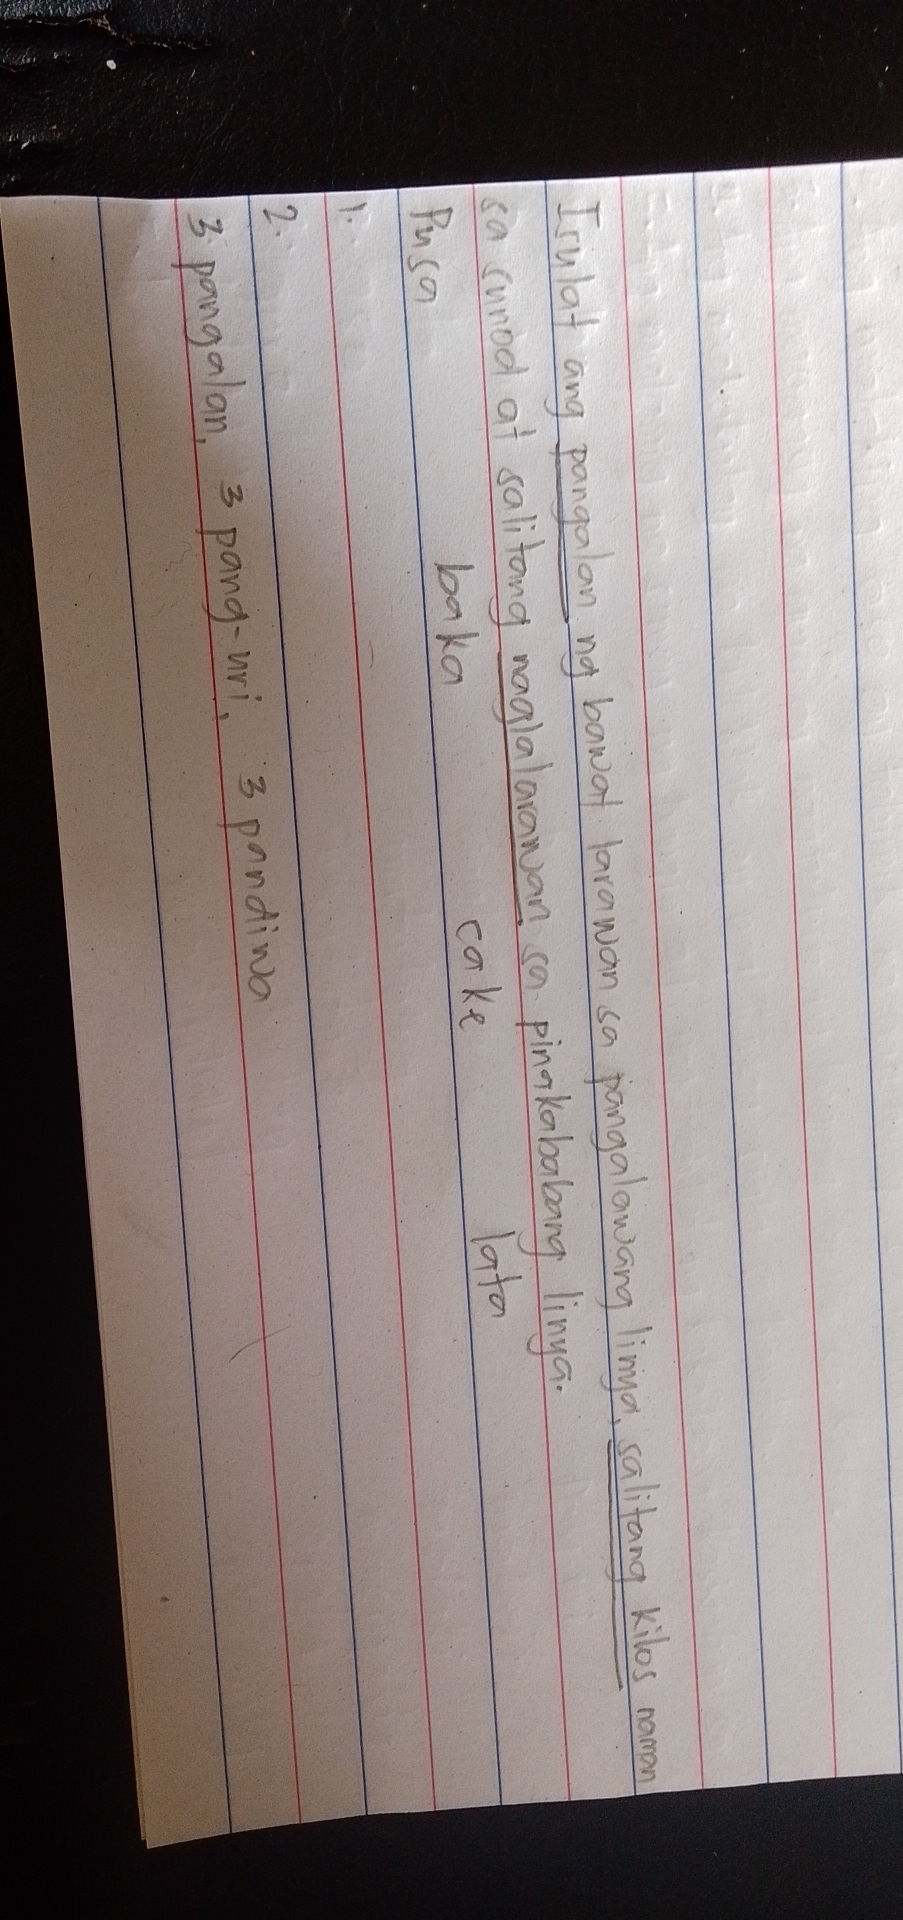 Isulat ang pangalan ng bawat larawan sa pangalawang linya, salitang kilos naman
sa sunod at salitang naglalarawan sa pinakababang linya.
Pusa baka cake lata
1.
2.
3 pangalan, 3 pang-uri, 3 pandiwa